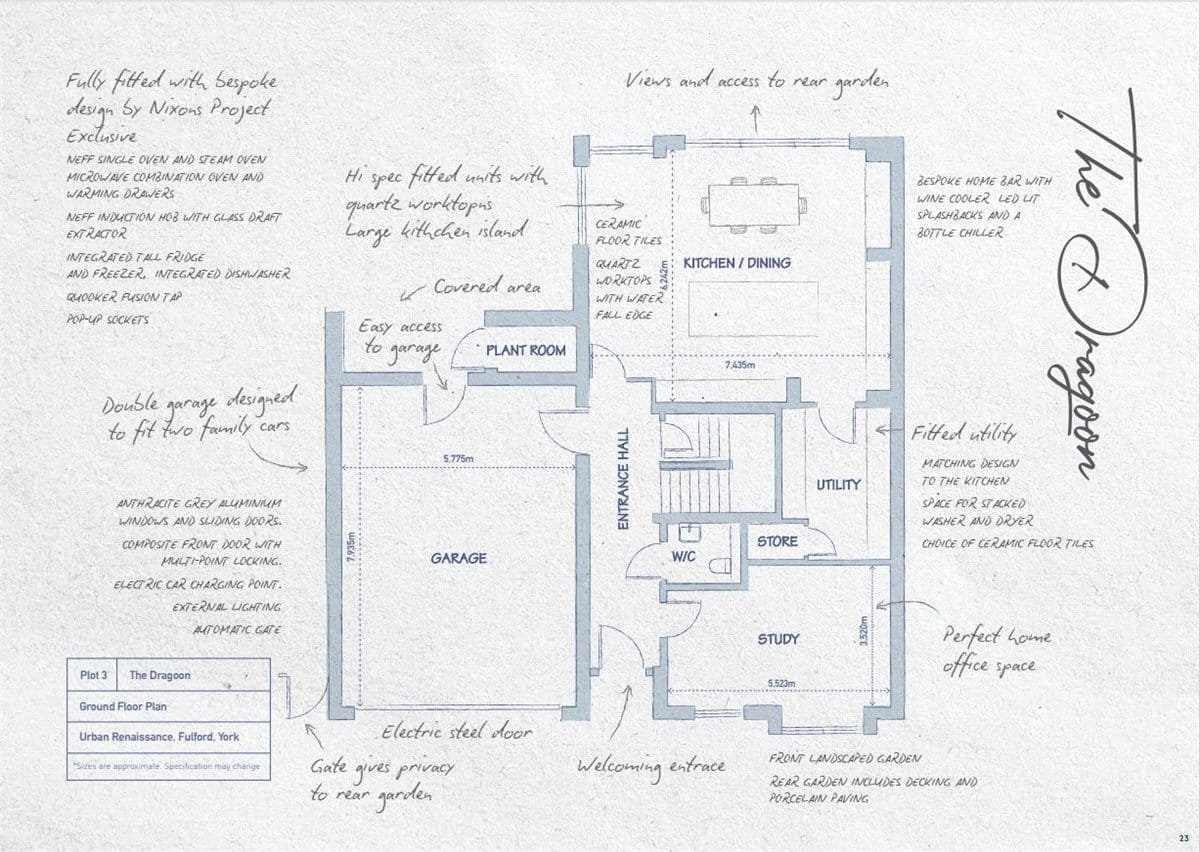 Fully fitted with bespoke
design by Nixons Project
Exclusive
NEFF SINGLE OVEN AND STEAM OVEN
MICROWAVE COMBINATION OVEN AND
WARMING DRAWERS
NEFF INDUCTION HOB WITH GLASS DRAFT
EXTRACTOR
INTEGRATED TALL FRIDGE
AND FREEZER, INTEGRATED DISHWASHER
QUOOKER FUSION TAP
POP-UP SOCKETS
Views and access to rear garden
Hi spec fitted units with
quartz worktopns
Large kithchen island
CERAMIC
FLOOR TILES
QUARTZ
WORKTOPS
WITH WATER
FALL EDGE
6,242m
KITCHEN / DINING
7,435m
BESPOKE HOME BAR WITH
WINE COOLER LED LIT
SPLASHBACKS AND A
BOTTLE CHILLER
The Dragoon
Covered area
Easy access
to garage
PLANT ROOM
Double garage designed
to fit two family cars
5,775m
7,935m
GARAGE
ENTRANCE HALL
UTILITY
STORE
W/C
Fitted utility
MATCHING DESIGN
TO THE KITCHEN
SPACE FOR STACKED
WASHER AND DRYER
CHOICE OF CERAMIC FLOOR TILES
ANTHRACITE GREY ALUMINIUM
WINDOWS AND SLIDING DOORS.
COMPOSITE FRONT DOOR WITH
MULTI-POINT LOCKING.
ELECTRIC CAR CHARGING POINT.
EXTERNAL LIGHTING
AUTOMATIC GATE
STUDY
3,520m
5,523m
Perfect home
office space
Plot 3 The Dragoon
Ground Floor Plan
Urban Renaissance, Fulford, York
*Sizes are approximate. Specification may change
Electric steel door
Gate gives privacy
to rear garden
Welcoming entrace
FRONT LANDSCAPED GARDEN
REAR GARDEN INCLUDES DECKING AND
PORCELAIN PAVING
23